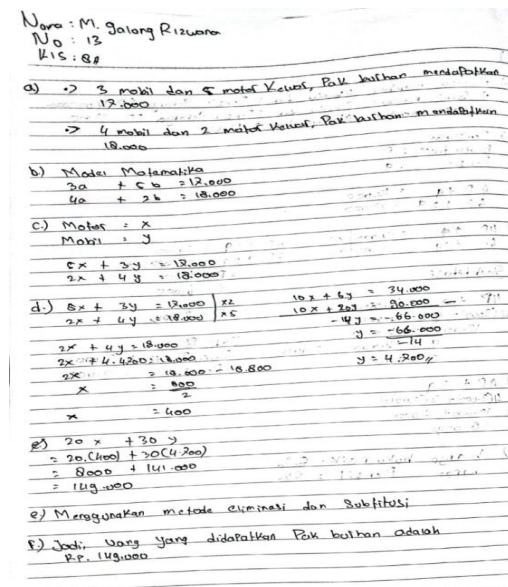 Nama : M. galang Rizwana
No : 13
Kls : 8A
a) •> 3 mobil dan 5 motor Keluar, Pak burhan mendapatkan
17.000
•> 4 mobil dan 2 motor Keluar, Pak burhan mendapatkan
18.000
b) Model Matematika
3a + 5b = 17.000
4a + 2b = 18.000
c.) Motor = x
Mobil = y
5x + 3y = 17.000
2x + 4y = 18.000
d.) 5x + 3y = 17.000 | x2 10x + 6y = 34.000
2x + 4y = 18.000 | x5 10x + 20y = 90.000 -
-14y = -66.000
y = -66.000
-14
y = 4.700 //
2x + 4y = 18.000
2x + 4.4700 = 18.000
2x = 18.000 - 18.800
x = 800
2
x = 400
e) 20 x + 30 y
= 20.(400) + 30(4.700)
= 8000 + 141.000
= 149.000
e) Menggunakan metode eliminasi dan Subtitusi
f.) Jadi, Uang yang didapatkan Pak burhan adalah
Rp. 149.000